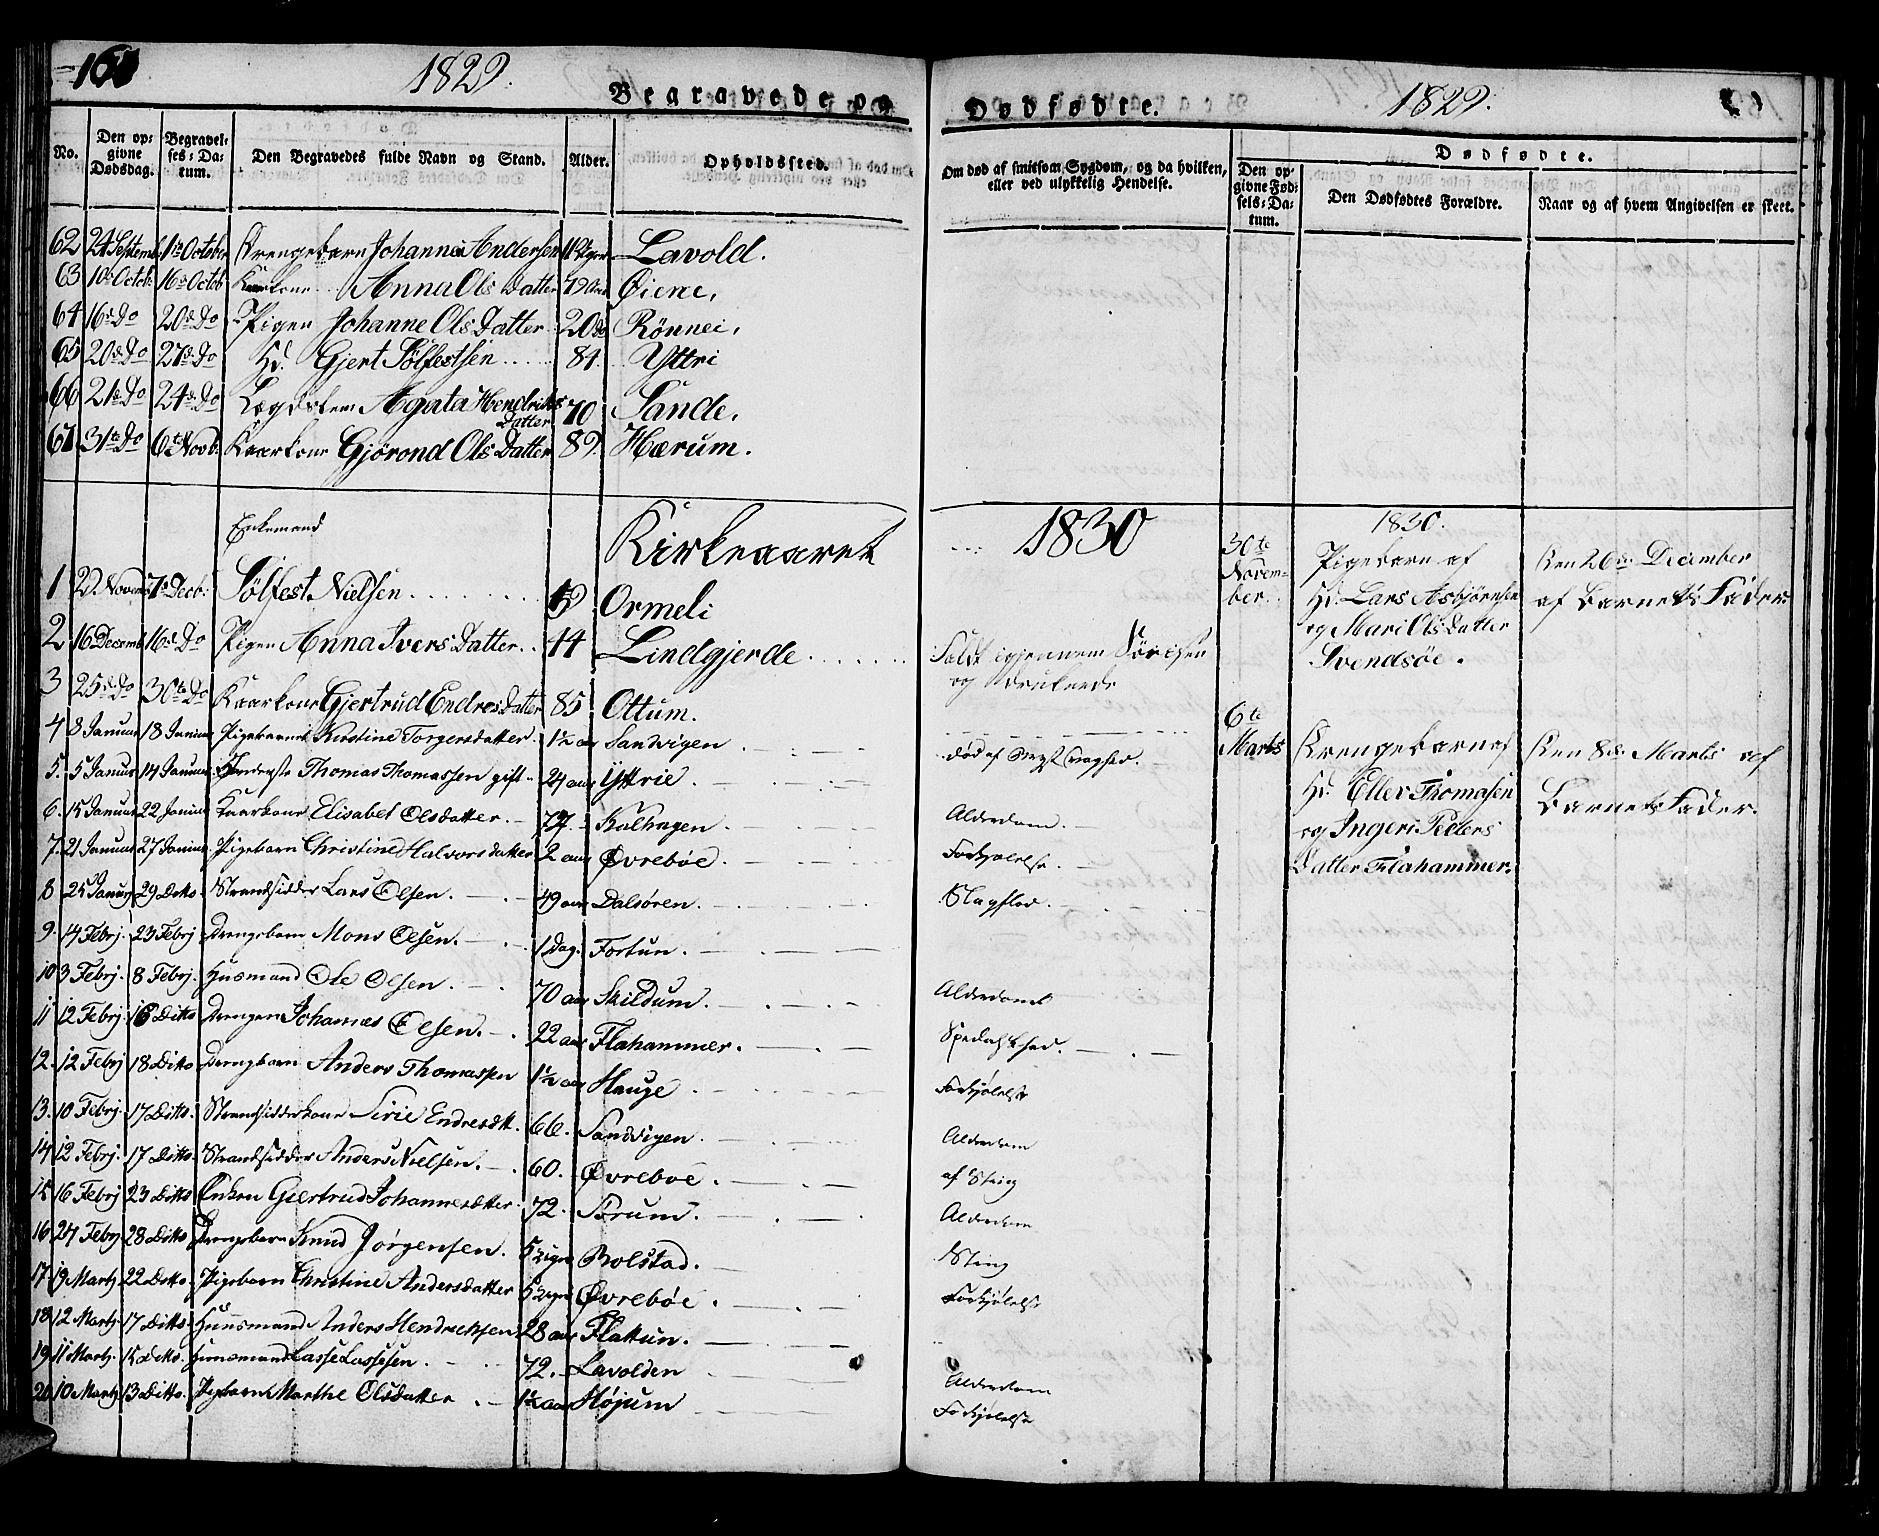 1829.
Begravede og
Dødfødte.
1829.
No.
Den opgivne Dødsdag.
Begravelses-Datum.
Den Begravedes fulde Navn og Stand.
Alder.
Opholdssted.
Om død af smitsom Sygdom, og da hvilken, eller ved ulykkelig Hendelse.
Dødfødte.
Den opgivne Fødsels-Datum.
Den Dødfødtes Forældre.
Naar og af hvem Angivelsen er skeet.
62 24 Septemb. 1ste October Drengebarn Johannes Andersen Lavold.
63 10de Octob. 16de Octob Kaarkone Anna Ols Datter 79 Aar Øiene.
64 16de Do 20de Do Pigen Johanne Ols Datter 20 do Rönnei.
65 20de Do 27de Do Hd. Gjert Sölfestsen 84. Yttri
66 21de Do 24de Do Lægdslem Agata Hendriks Datter 70 Sande.
67 31te Do 6te Novb. Kaarkone Gjörond Ols Datter 89. Hærum.
Kirkeaaret 1830
Enkemand
1 Novemb 7de Decb. Sölfest Nielsen Ormeli
2 16 Decemb 16de Do Pigen Anna Ivers Datter 44 Lindgjerde Faldt igjennem Iisen og druknede
3 25de Do 30te Do Kaarkone Gjertrud Endres Datter 85 Ottum.
4 8 Januar 18 Januar Pigebarnet Kirstine Torgersdatter 1½ aar Sandvigen
5. 5 Januar 14 Januar Thomas Thomassen gift 24 aar Yttrie død af Brystsvaghed.
6. 15 Januar 22 Januar Kaarkone Elisabet Olsdatter 77. Kalhagen Alderdom.
7. 21 Januar 27 Januar Pigebarn Christine Halvorsdatter 2 aar Øvrebøe Forkjølelse.
8 25 Januar 29 Ditto Strandsidder Lars Olsen. 49 aar Dalsören. Slagflod.
9. 14 Febrj. 23 Febrj Drengebarn Mons Olsen. 1 Dag. Fortun.
10 3 Febrj. 8 Febrj. Husmand Ole Olsen 70 aar Skildum. Alderdom
11 12 Febrj. 16 Ditto Drengen Johannes Olsen. 22 aar Flahammer. Spedalskhed.
12. 12 Febrj 18 Ditto Drengbarn Anders Thomassen 1½ aar Hauge Forkjølelse
13. 10 Febrj. 17 Ditto. Strandsidderkone Sirie Endresdtt. 66. Sandvigen. Alderdom
14 12 Febrj. 17 Ditto. Strandsidder Anders Nielsen. 60. Øvreboe. af Sting
15 16 Febrj 23 Ditto Enken Giertrud Johannesdatter 72. Sörum. Alderdom
16 24 Febrj 28 Ditto Drengebarn Knud Jørgensen. 5 Bolstad. Sting
17. 19 Martz 22 Ditto. Pigebarn Christine Andersdatter 5 Øvrebøe. Forkjølelse
18 12 Martz. 17 Ditto. Huusmand Anders Hendrichsen 28 aar Flattun.
19 11 Martz. 15 Ditto. Huusmand Lasse Lassesen. 72. Lavolden Alderdom
20 10 Martz 13 Ditto. Pigebarn Marthe Olsdatter 1½ aar Højum Forkjølelse
1830.
30te November. Pigebarn af Hd. Lars Asbjörnsen og Mari Ols Datter Svendsöe. Den 26de December af Barnets Fader.
6te Marts Drengebarn af Hd. Eller Thomasen og Ingeri Peders Datter Flahammer. Den 8de Marts af Barnets Fader.